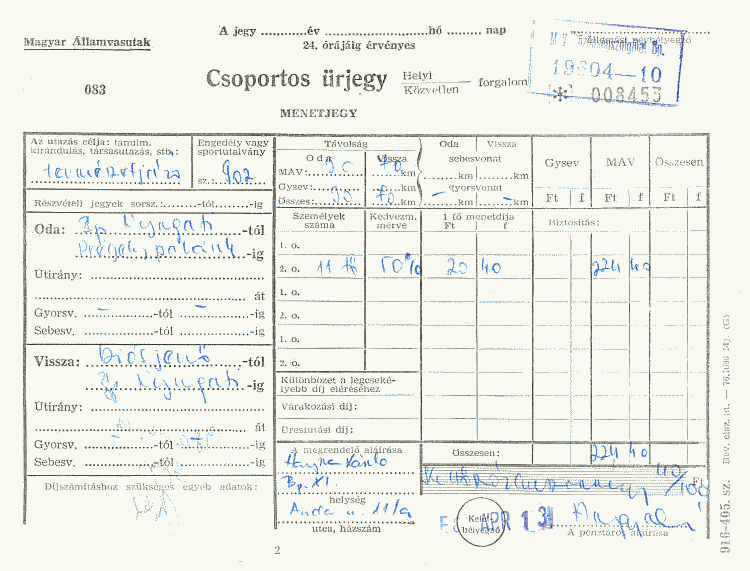 A jegy ........... év .................................. hó ......... nap
Magyar Államvasutak
24. órájáig érvényes
083
Csoportos űrjegy
Helyi
Közvetlen
forgalom
19804-10
* 008453
MENETJEGY
Az utazás célja: tanulm.
kirándulás, társasutazás, stb.:
Engedély vagy
sportutalvány
sz.: 902
Távolság
Oda
Vissza
MÁV: km
Gysev: km
Összes: km
Oda
Vissza
sebesvonat
km
km
gyorsvonat
km
km
Gysev
MÁV
Összesen
Ft f
Ft f
Ft f
Részvételi jegyek sorsz.: -tól -ig
Oda: Bp Nyugati -tól
-ig
Útirány:
át
Gyorsv. – -tól – -ig
Sebesv. -tól -ig
Személyek
száma
Kedvezm.
mérve
1 fő menetdíja
Ft f
Biztosítás:
1. o.
2. o. 11 fő 50% 20 40 224 40
1. o.
2. o.
1. o.
2. o.
Vissza: Diósjenő -tól
Bp Nyugati -ig
Útirány:
át
Gyorsv. -tól -ig
Sebesv. -tól -ig
Különbözet a legcseké-
lyebb díj eléréséhez
Várakozási díj:
Üresfutási díj:
Díjszámításhoz szükséges egyéb adatok:
A megrendelő aláírása
László
Bp. XI.
helység
u. 11/a
utca, házszám
Összesen: 224 40
40/100 Ft
Kelet-
bélyegző
APR 13
A pénztáros aláírása
2
916-405. sz. Bev. elsz. m. —